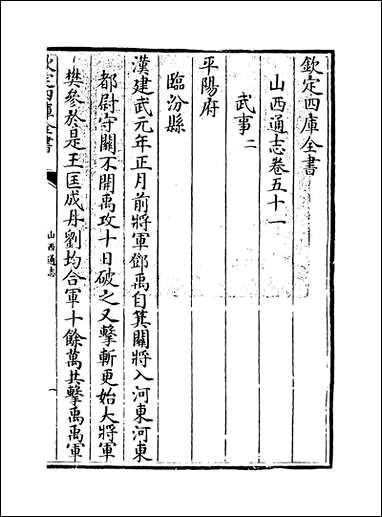 欽定四庫全書
山西通志卷五十一
武事二
平陽府
臨汾縣
漢建武元年正月前將軍鄧禹自箕關將入河東河東
都尉守關不開禹攻十日破之又擊斬更始大將軍
樊參於是王匡成丹劉均合軍十餘萬共擊禹禹軍
欽定四庫全書
山西通志
一